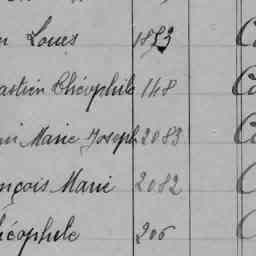 Louis 1853
Théophile 148
Marie Joseph 2083
nçois Marie 2082
héophile 206